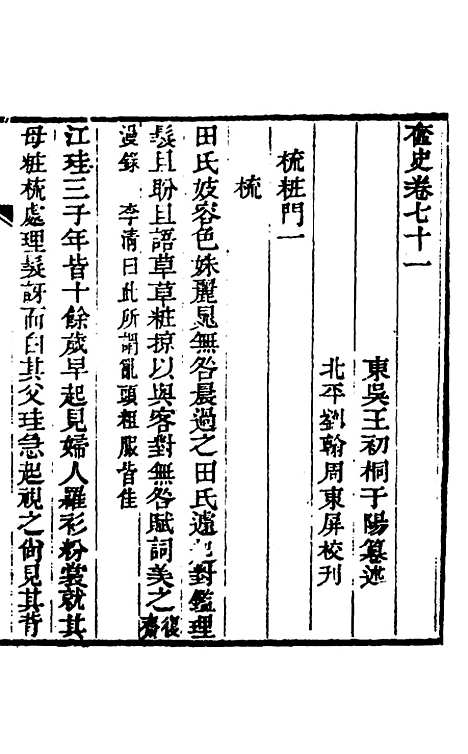 奩史卷七十一
東吳王初桐于陽纂述
北平劉翰周東屏校刊
梳粧門一
梳
田氏妓容色姝麗晁無咎晨過之田氏遽對鑑理
髮且盼且語草草粧掠以與客對無咎賦詞美之復齋
漫錄 李清曰此所謂亂頭粗服皆佳
江珪三子年皆十餘歲早起見婦人羅衫粉裳就其
母粧梳處理髮訝而白其父珪急起視之尙見其背